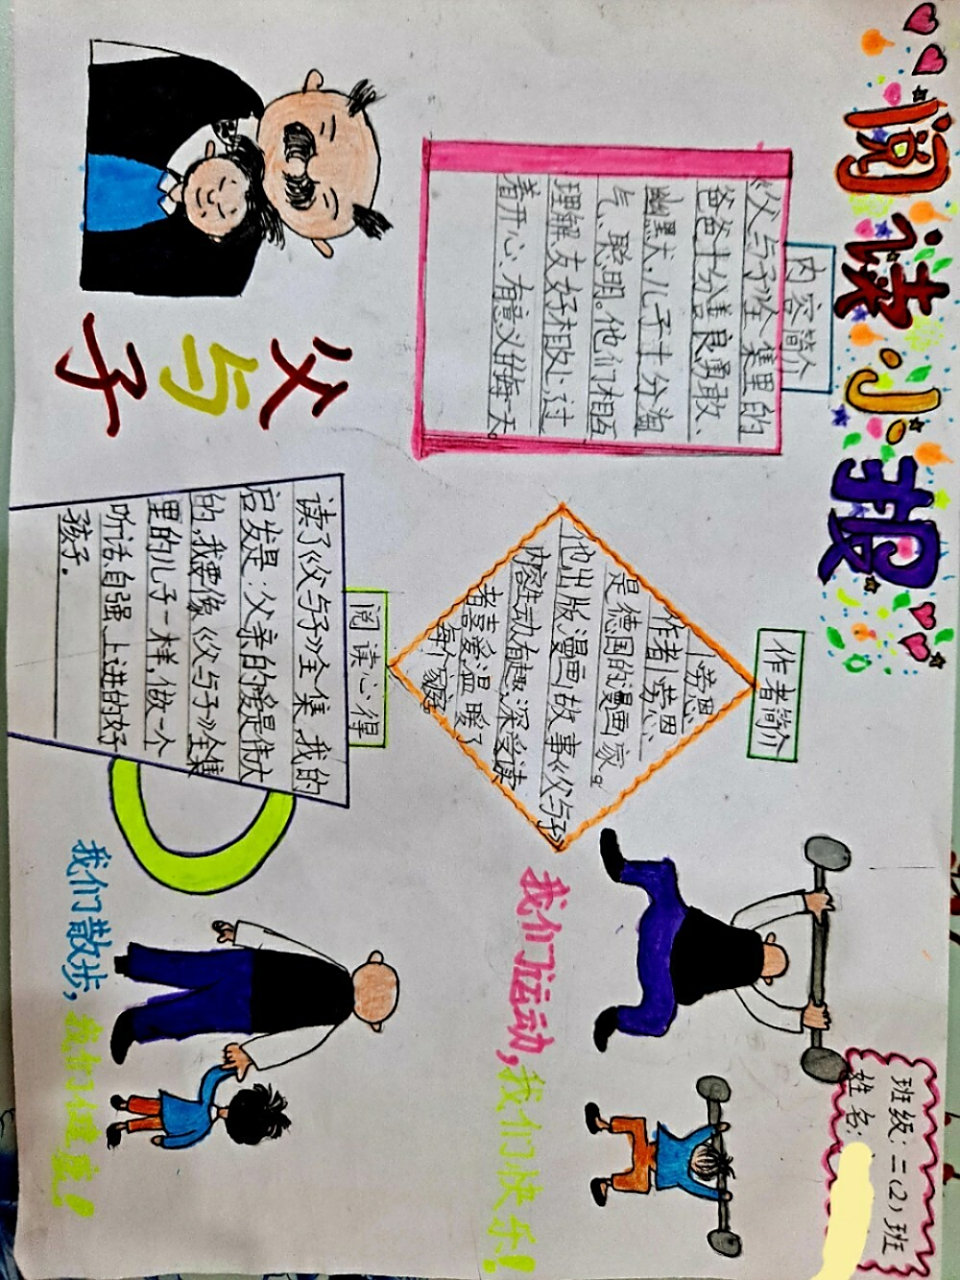 阅读小报
班级:二(2)班
姓名:
内容简介
《父与子》全集里的
爸爸十分善良勇敢、
幽默大,儿子十分淘
气、聪明。他们相互
理解、友好相处、过
着开心、有意义的每一天。
作者简介
劳恩
作者劳恩
是德国的漫画家。
他出版漫画故事《父与子》
内容生动有趣,深受读
者喜爱,温暖了
每个家庭
父与子
阅读心得
读了《父与子》全集,我的
启发是:父亲的爱是伟大
的,我要像《父与子》全集
里的儿子一样,做一个
听话、自强、上进的好
孩子。
我们运动,我们快乐!
我们散步,我们健康!